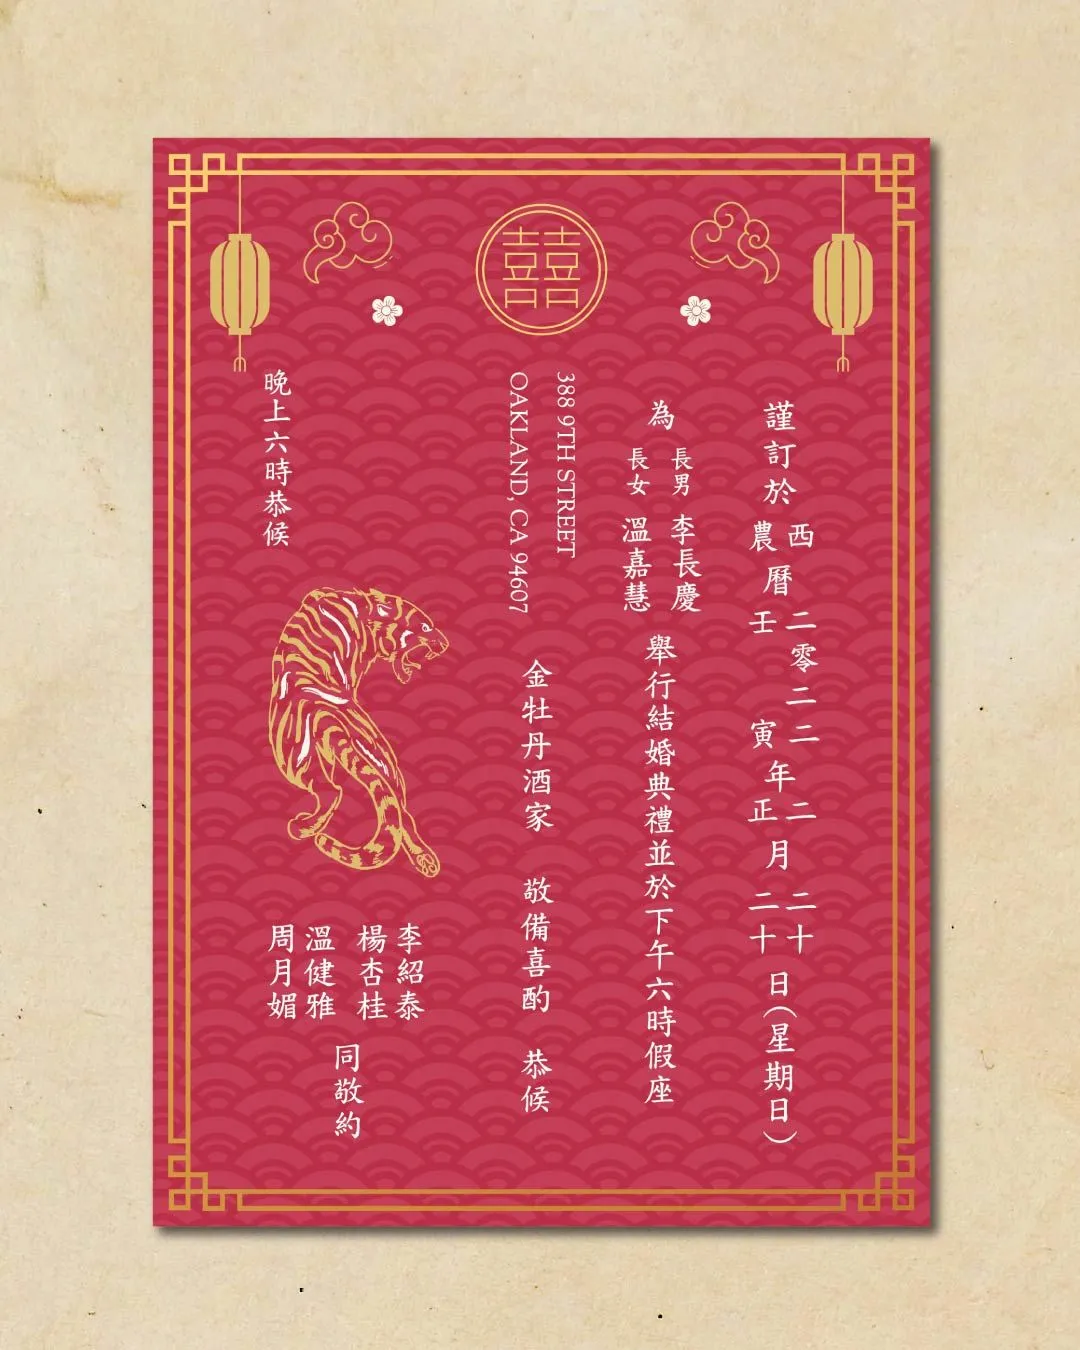 囍
謹訂於
西
農
曆
二零二二
壬寅
年
二
正
月
二十
二十
日(星期日)
為
長男 李長慶
長女 溫嘉慧
舉行結婚典禮並於下午六時假座
388 9TH STREET
OAKLAND, CA 94607
金牡丹酒家 敬備喜酌 恭候
李紹泰
楊杏桂
溫健雅
周月媚
同敬約
晚上六時恭候